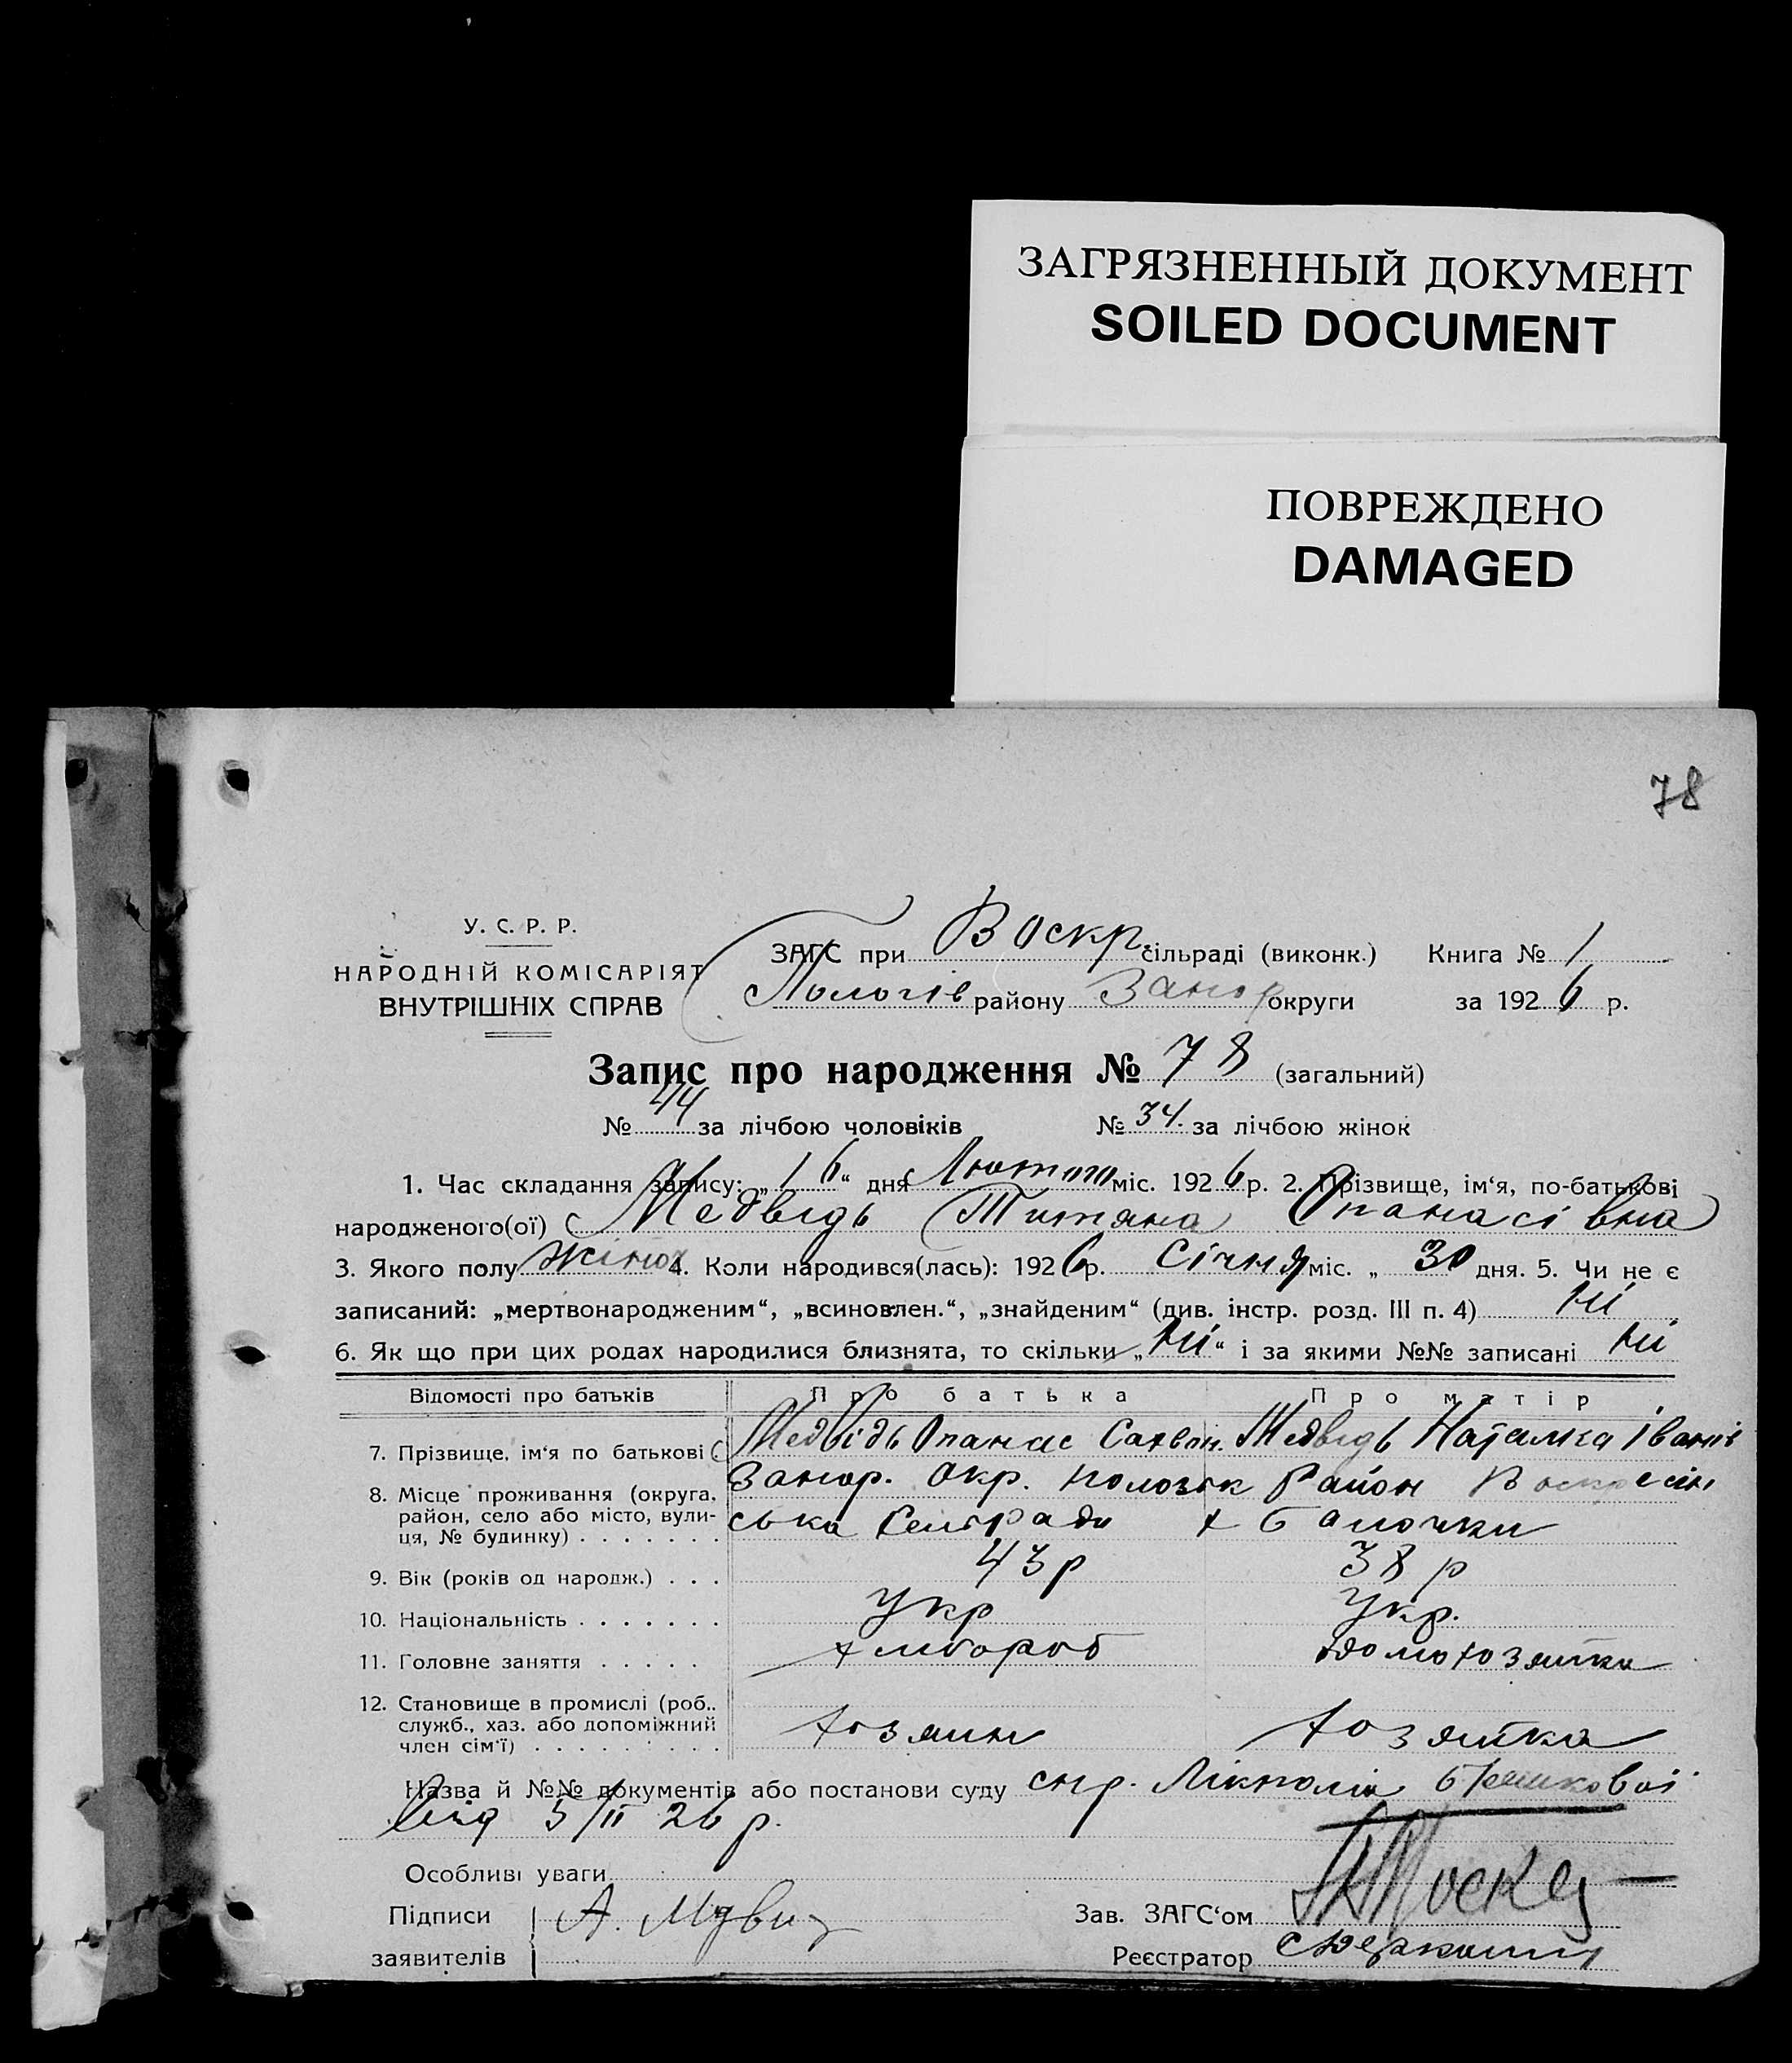 ЗАГРЯЗНЕННЫЙ ДОКУМЕНТ
SOILED DOCUMENT
ПОВРЕЖДЕНО
DAMAGED
78
У. С. Р. Р.
НАРОДНІЙ КОМІСАРІЯТ
ВНУТРІШНІХ СПРАВ
ЗАГС при Воскр. сільраді (виконк.) Книга № 1
Пологів району Запор округи за 1926 р.
Запис про народження № 78 (загальний)
№ 44 за лічбою чоловіків № 34. за лічбою жінок
1. Час складання запису: „16“ дня Лютого міс. 1926 р. 2. Прізвище, ім‘я, по-батькові
народженого(ої) Медвідь Титяна Опанасівна
3. Якого полу жіноч 4. Коли народився(лась): 1926 р. Січня міс. „30 дня. 5. Чи не є
записаний: „мертвонародженим“, „всиновлен.“, „знайденим“ (див. інстр. розд. III п. 4) ні
6. Як що при цих родах народилися близнята, то скільки „ні“ і за якими №№ записані ні
Відомості про батьків Про батька Про матір
7. Прізвище, ім‘я по батькові Медвідь Опанас Медвідь Наталка Іванів
8. Місце проживання (округа, район, село або місто, вулиця, № будинку) Запор. Окр. Район Воскресін
ська Сельради х Балочки
9. Вік (років од народж.) 43 р 38 р
10. Національність Укр Укр.
11. Головне заняття хлібороб домохозяйка
12. Становище в промислі (роб., служб., хаз. або допоміжний член сім‘ї) хозяин хозяйка
Назва й №№ документів або постанови суду спр.
від 5/II 26 р.
Особливі уваги
Підписи А. Зав. ЗАГС‘ом
заявителів Реєстратор